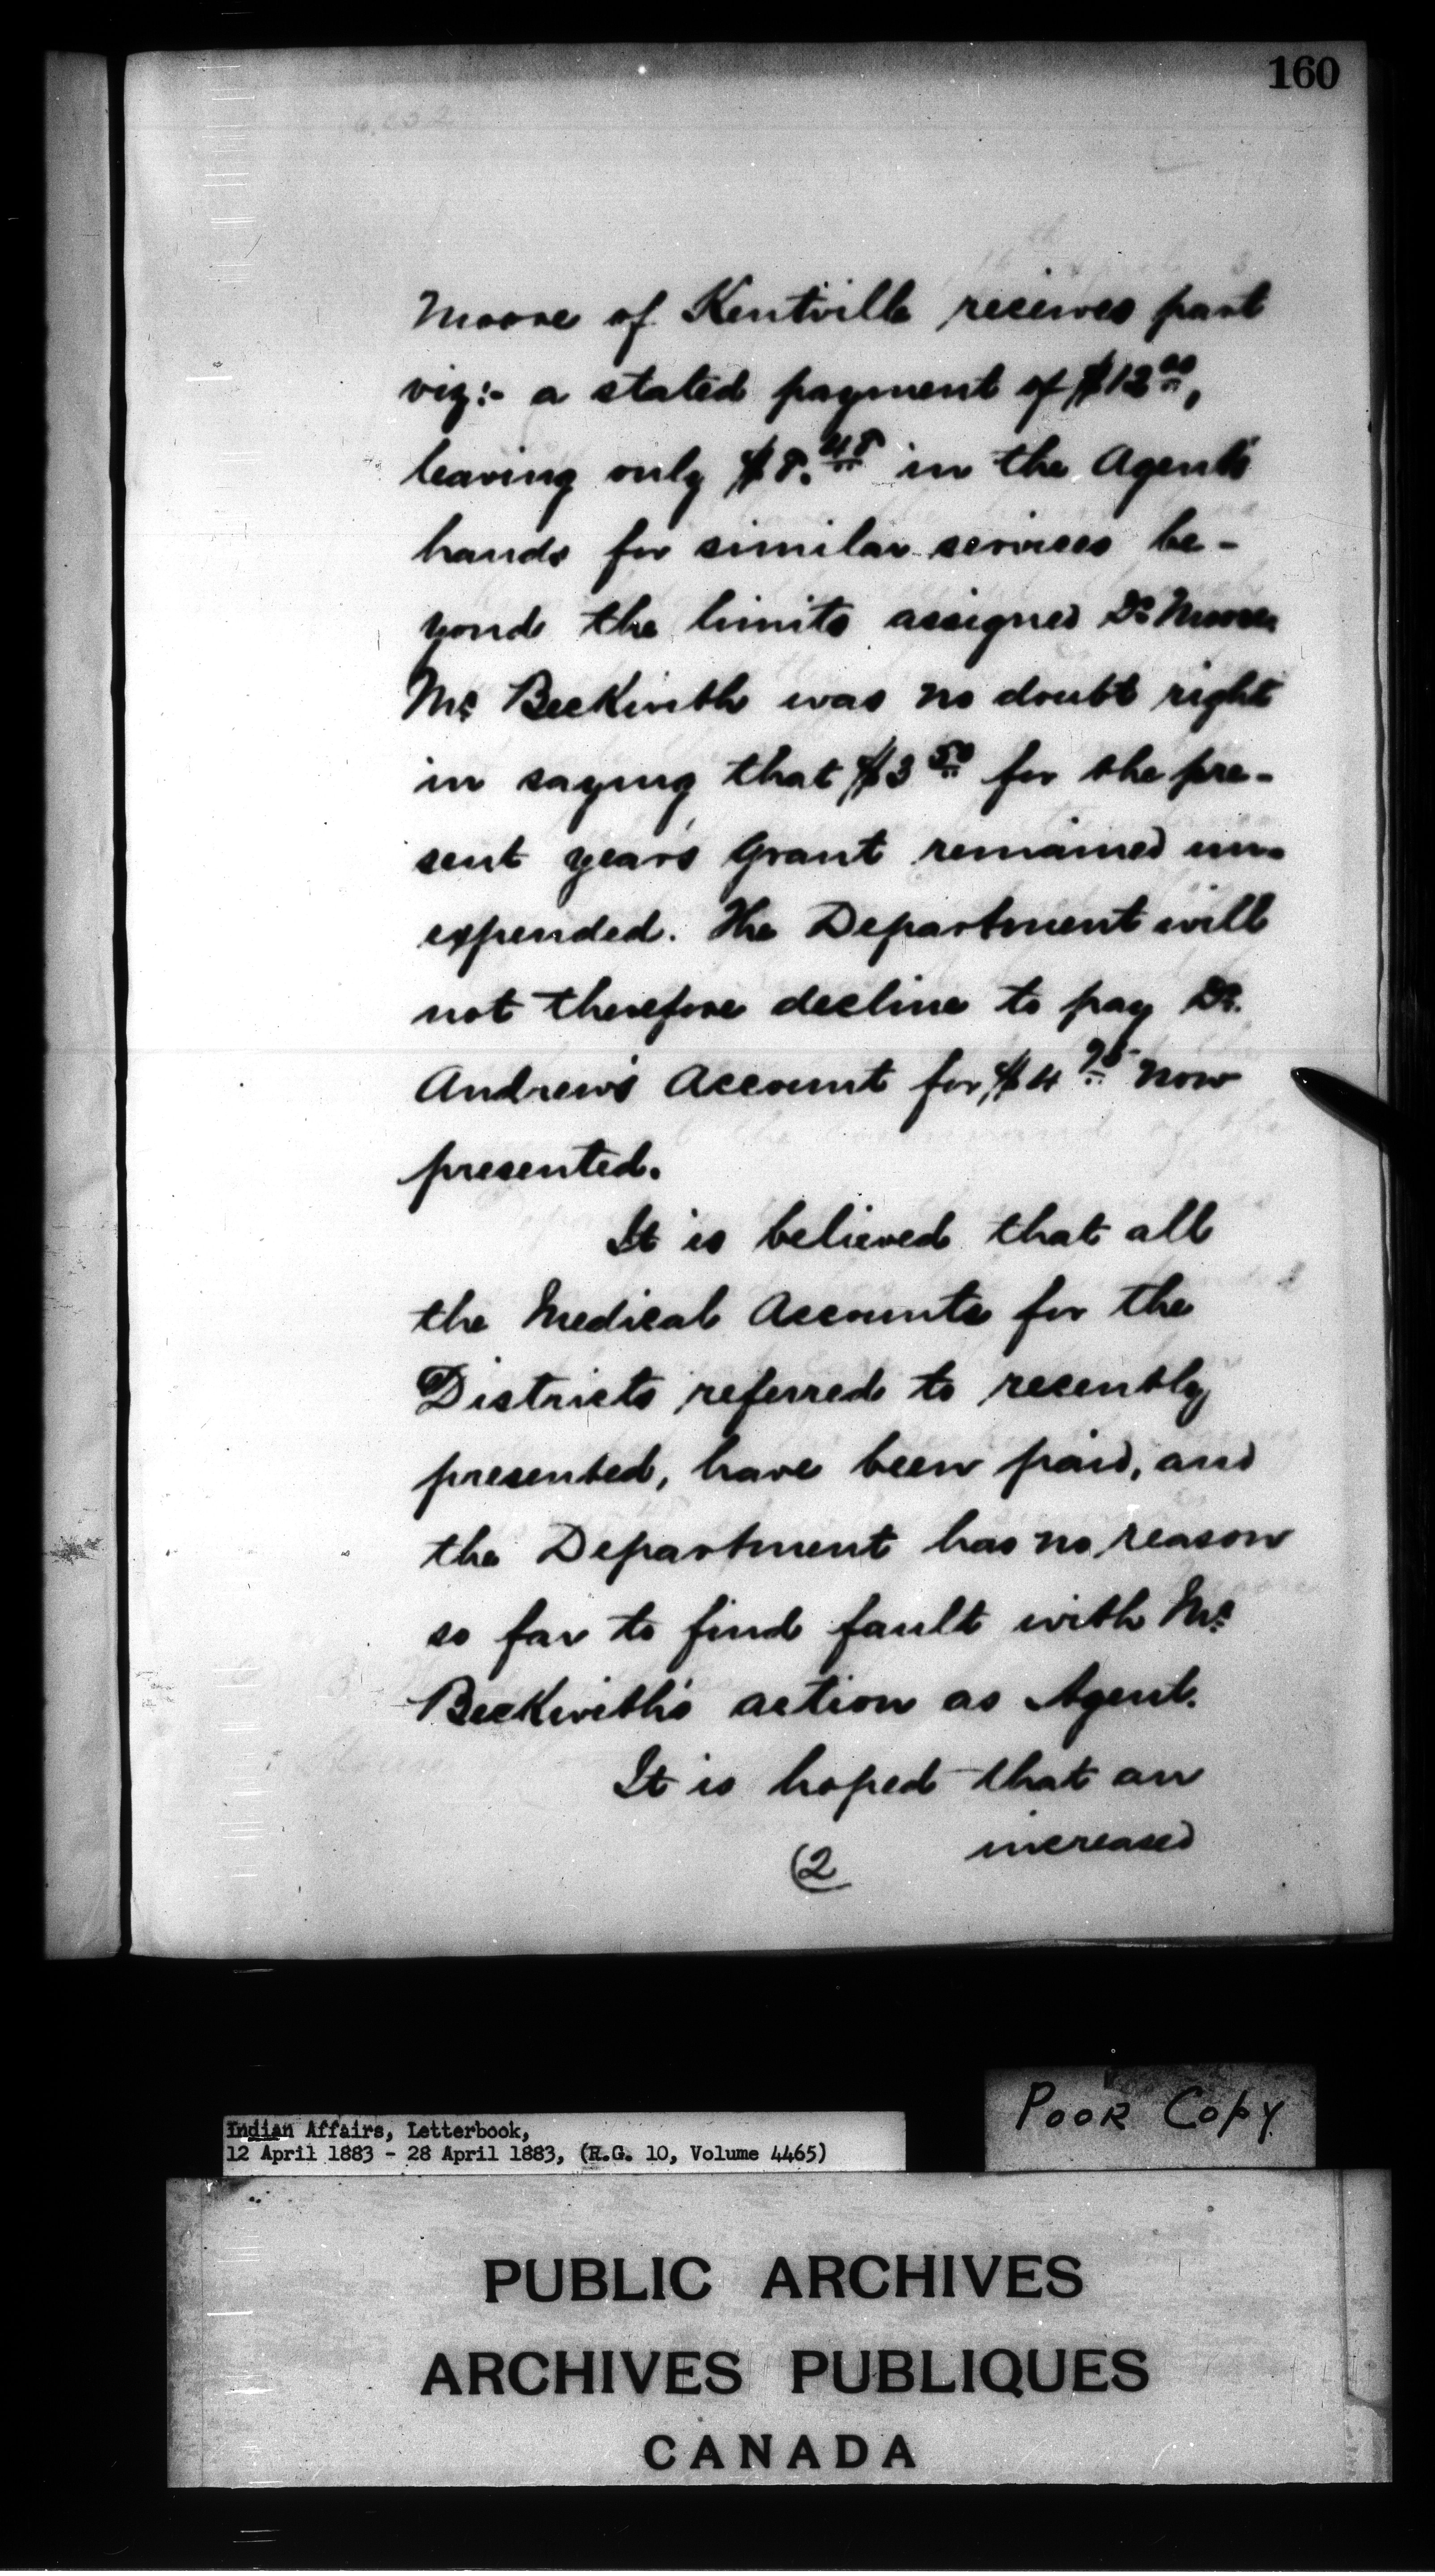 160
Moore of Kentville receives part
viz:- a stated payment of $12.00,
leaving only $8.48 in the Agent's
hands for similar services be-
yond the limits assigned Dr Moore
Mr Beckwith was no doubt right
in saying that $3.50 for the pre-
sent year's Grant remained un-
expended. The Department will
not therefore decline to pay Dr.
Andrew's Account for $4.95 now
presented.
It is believed that all
the Medical Accounts for the
Districts referred to recently
presented, have been paid, and
the Department has no reason
so far to find fault with Mr
Beckwith's action as Agent.
It is hoped that an
increased
(2
POOR COPY
Indian Affairs, Letterbook,
12 April 1883 - 28 April 1883, (R.G. 10, Volume 4465)
PUBLIC ARCHIVES
ARCHIVES PUBLIQUES
CANADA